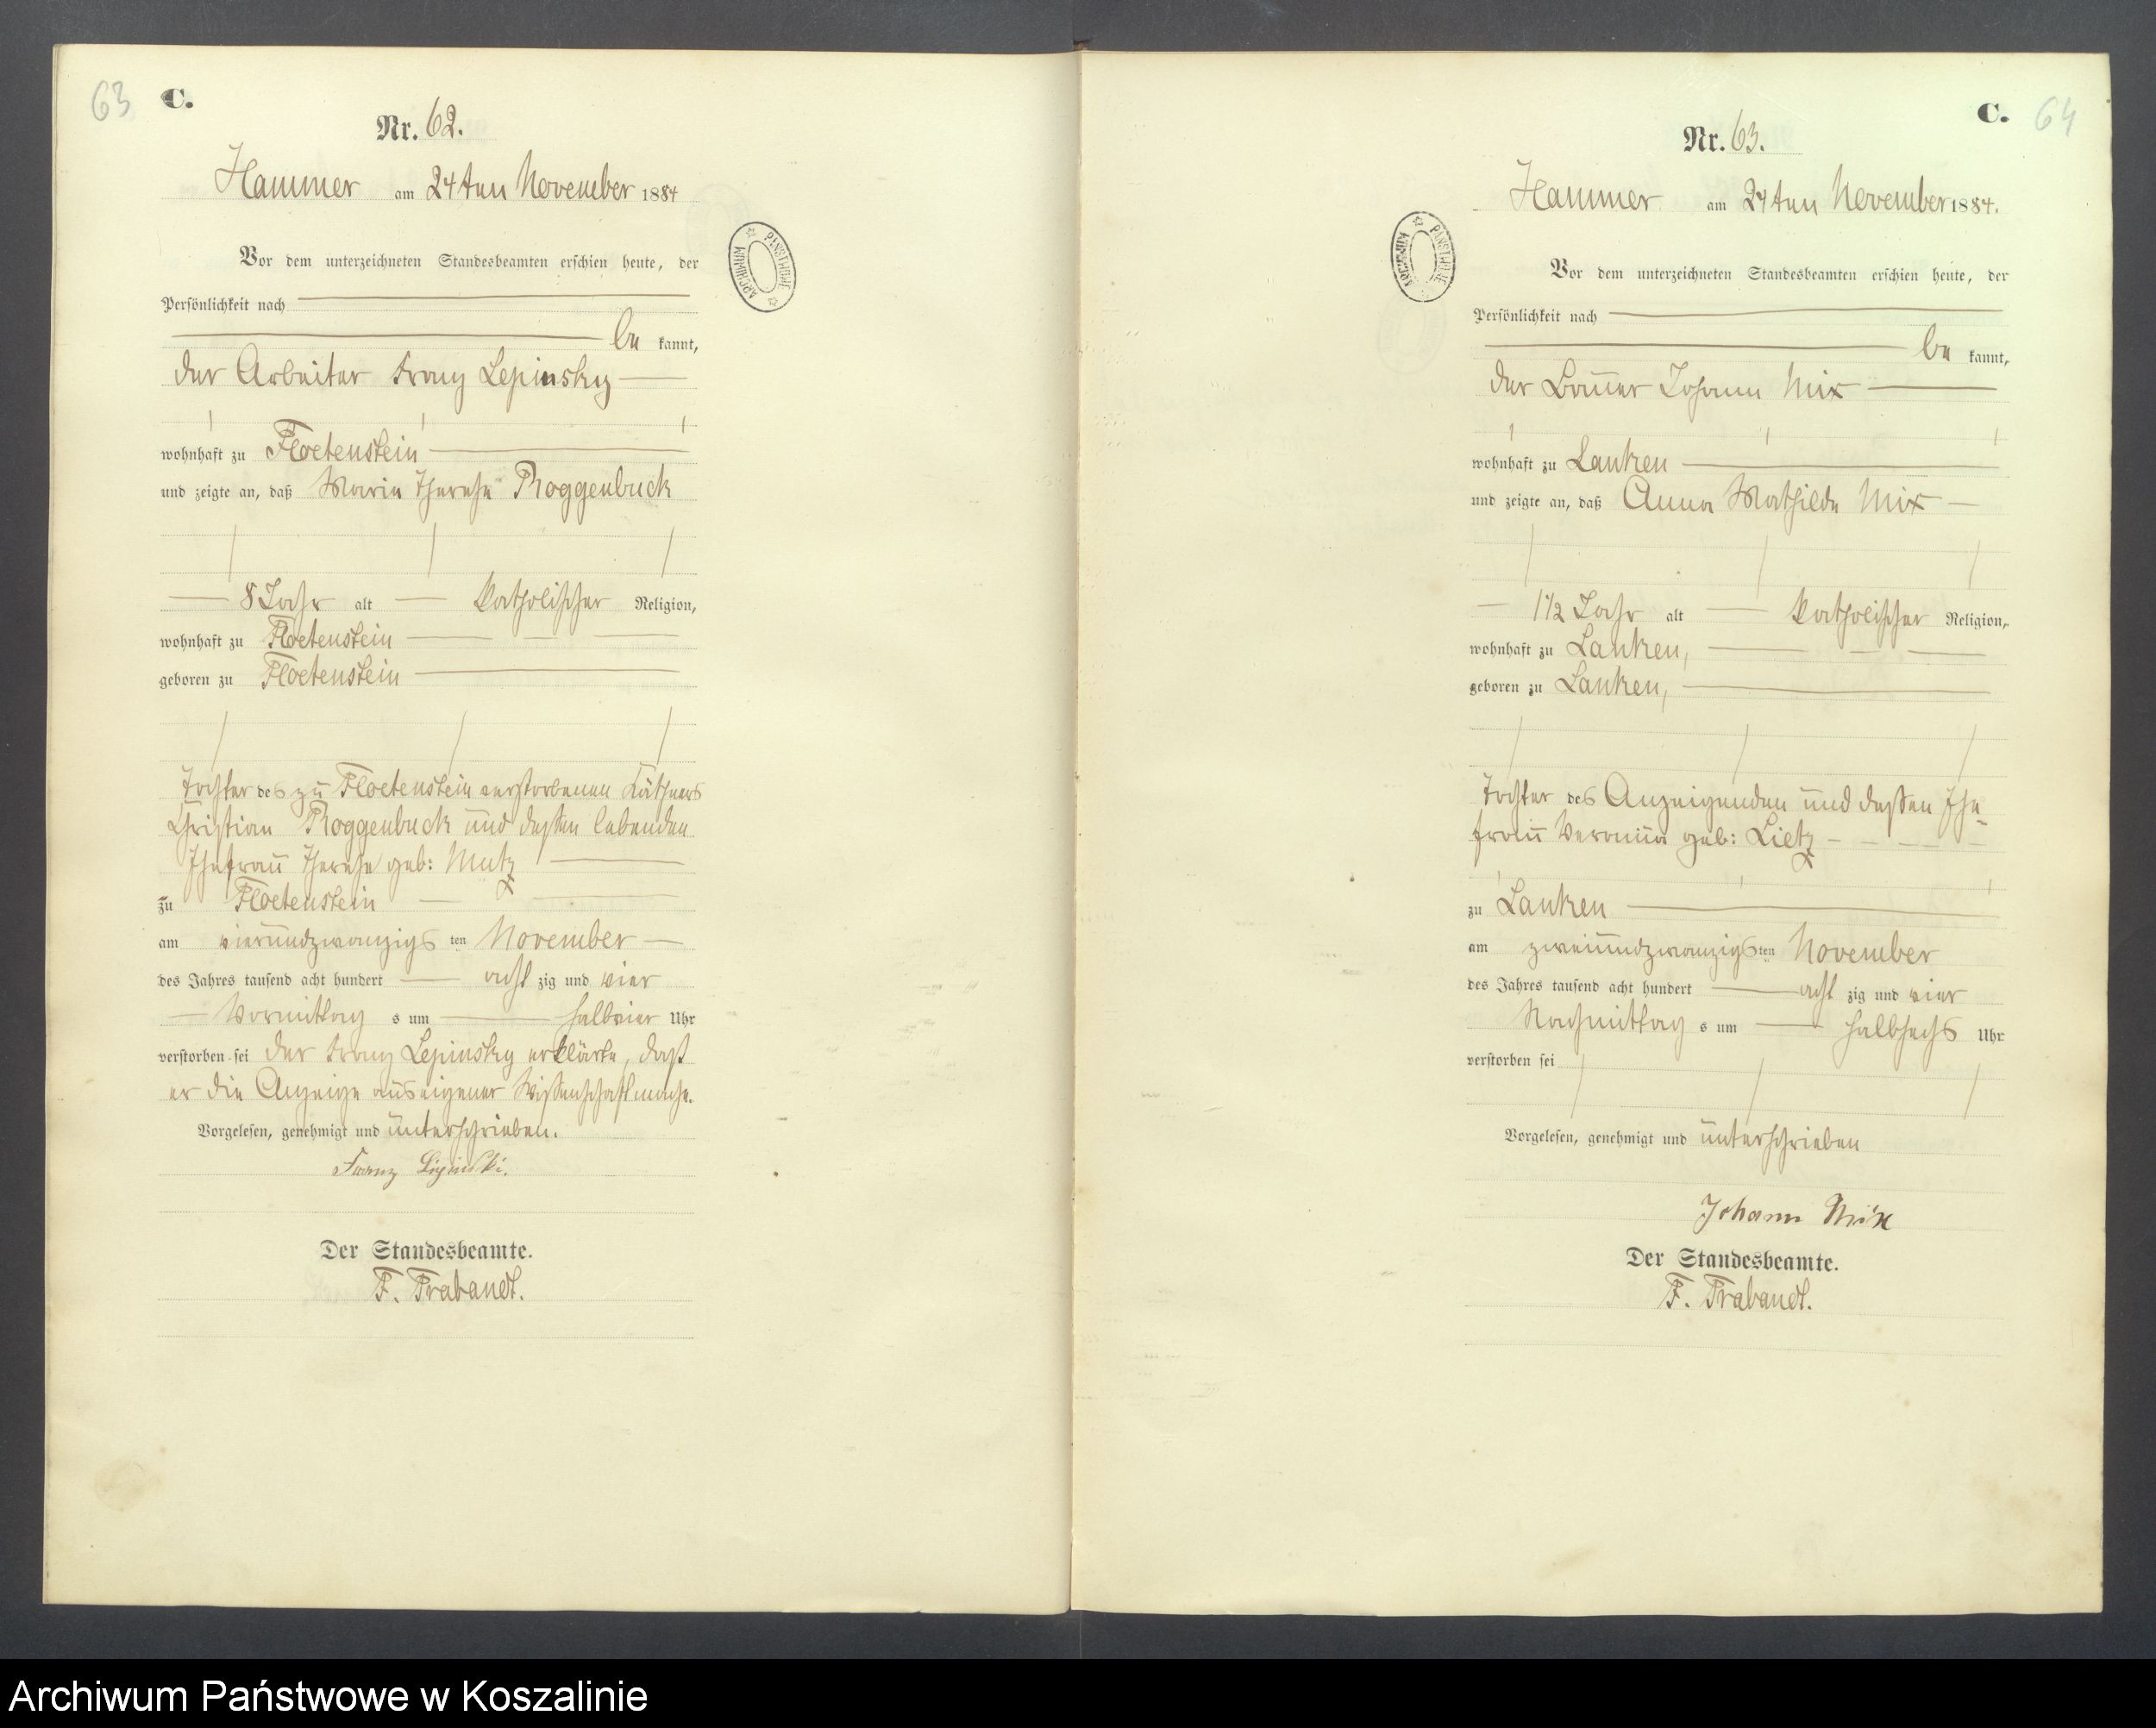 63
C.
Nr. 62.
Hammer am 24ten November 1884
Vor dem unterzeichneten Standesbeamten erschien heute, der
Persönlichkeit nach
be kannt,
der Arbeiter Franz Lepinsky
wohnhaft zu Floetenstein
und zeigte an, daß Maria Therese Roggenbuck
8 Jahr alt katholischer Religion,
wohnhaft zu Floetenstein
geboren zu Floetenstein
Tochter des zu Floetenstein verstorbenen Käthners
Christian Roggenbuck und dessen lebenden
Ehefrau Therese geb: Mutz
zu Floetenstein
am vierundzwanzigsten November
des Jahres tausend acht hundert acht zig und vier
Vormittag s um halbvier Uhr
verstorben sei der Franz Lepinsky erklärte, daß
er die Anzeige aus eigener Wissenschaft mache.
Vorgelesen, genehmigt und unterschrieben.
Franz Lipinski.
Der Standesbeamte.
F. Trabandt.
ARCHIWUM PAŃSTWOWE
C. 64
Nr. 63.
Hammer am 24ten November 1884.
Vor dem unterzeichneten Standesbeamten erschien heute, der
Persönlichkeit nach
be kannt,
der Bauer Johann Mix
wohnhaft zu Lanken
und zeigte an, daß Anna Mathilde Mix
1 1/2 Jahr alt katholischer Religion,
wohnhaft zu Lanken,
geboren zu Lanken,
Tochter des Anzeigenden und dessen Ehe-
frau Veronica geb: Lietz
zu Lanken
am zweiundzwanzigsten November
des Jahres tausend acht hundert acht zig und vier
Nachmittag s um halbsechs Uhr
verstorben sei
Vorgelesen, genehmigt und unterschrieben
Johann Mix
Der Standesbeamte.
F. Trabandt.
ARCHIWUM PAŃSTWOWE
Archiwum Państwowe w Koszalinie